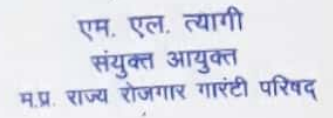 एम. एल. त्यागी
संयुक्त आयुक्त
म.प्र. राज्य रोजगार गारंटी परिषद